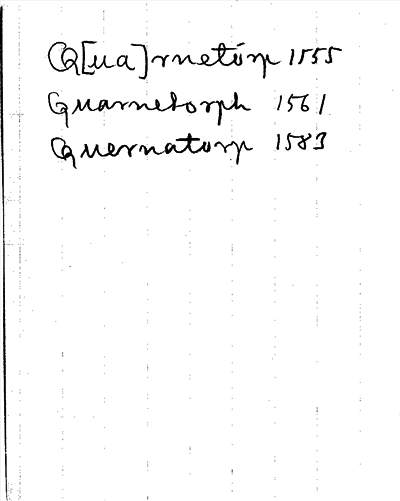 Q[ua]rnetórp 1555
Quarnetorph 1561
Quernatorp 1583